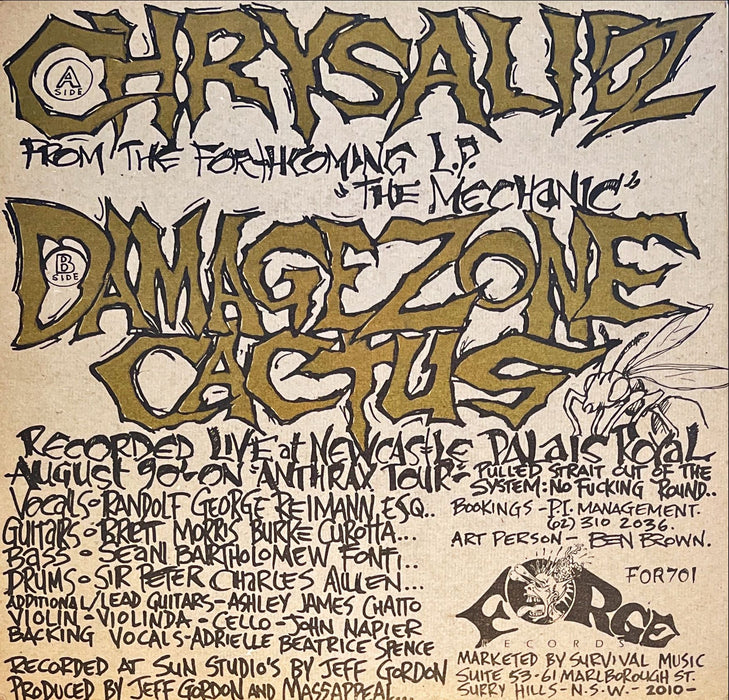 CHRYSALIDZ
A SIDE
FROM THE FORTHCOMING L.P.
"THE MECHANIC"
DAMAGEZONE
B SIDE
CACTUS
RECORDED LIVE at NEWCASTLE PALAIS ROYAL
AUGUST 90'-ON "ANTHRAX TOUR"- PULLED STRAIT OUT OF THE
SYSTEM: NO FUCKING ROUND..
VOCALS-RANDOLF GEORGE REIMANN, ESQ..
GUITARS-BRETT MORRIS BURKE CUROTTA...
BASS - SEAN BARTHOLOMEW FONTI..
DRUMS-SIR PETER CHARLES ALLEN...
ADDITIONAL/LEAD GUITARS-ASHLEY JAMES CHATTO
VIOLIN-VIOLINDA-CELLO-JOHN NAPIER
BACKING VOCALS-ADRIELLE BEATRICE SPENCE
RECORDED AT SUN STUDIO'S BY JEFF GORDON
PRODUCED BY JEFF GORDON AND MASSAPPEAL...
BOOKINGS - P.I. MANAGEMENT.
(02) 310 2036.
ART PERSON - BEN BROWN.
FOR701
FORGE
RECORDS
MARKETED BY SURVIVAL MUSIC
SUITE 53-61 MARLBOROUGH ST.
SURRY HILLS-N.S.W. 2010-